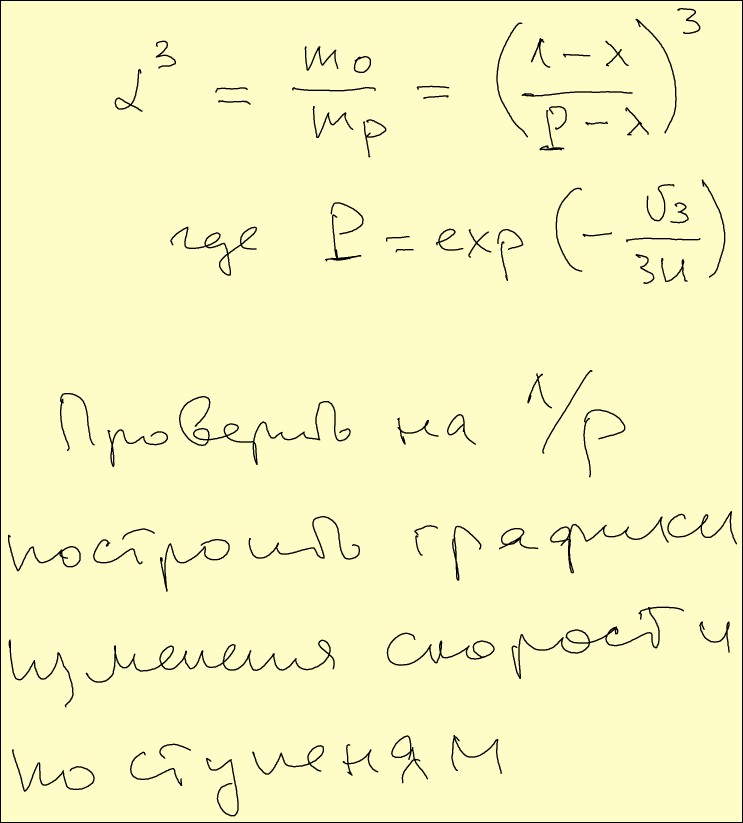 α³ = m₀/mₚ = ((1-λ)/(P-λ))³
где P = exp(-υ₃/3u)
Проверить на 1/р
построить графики
изменения скорости
по ступеням